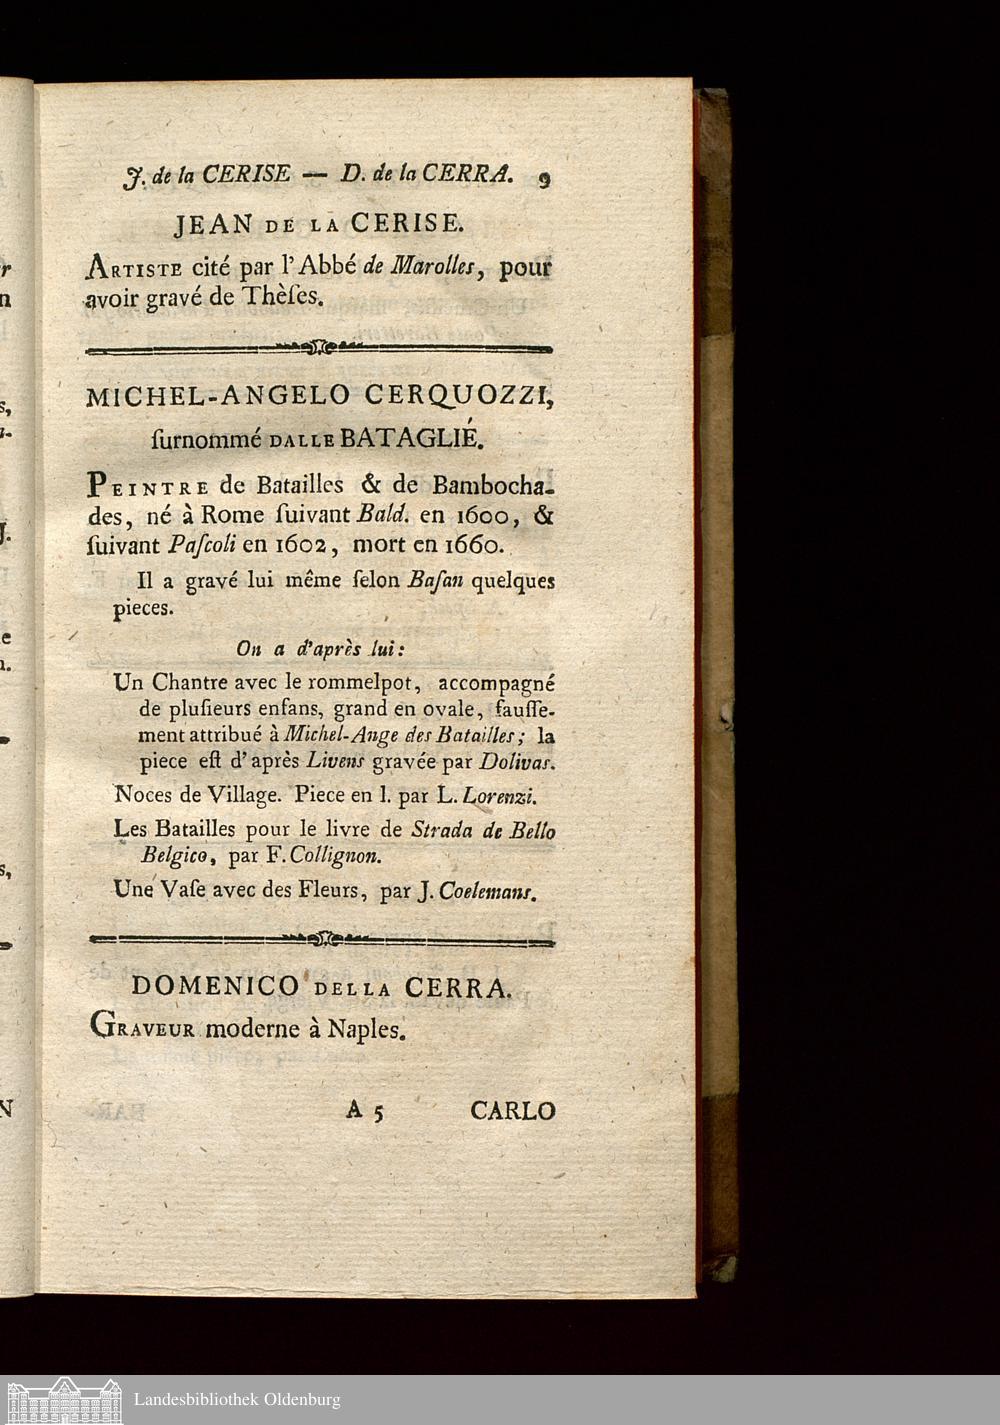 J. de la CERISE — D. de la CERRA. 9
JEAN DE LA CERISE.
ARTISTE cité par l'Abbé de Marolles, pour
avoir gravé de Thèſes.
MICHEL-ANGELO CERQUOZZI,
ſurnommé DALLE BATAGLIÉ.
PEINTRE de Batailles & de Bambocha-
des, né à Rome ſuivant Bald. en 1600, &
ſuivant Paſcoli en 1602, mort en 1660.
Il a gravé lui même ſelon Baſan quelques
pieces.
On a d'après lui:
Un Chantre avec le rommelpot, accompagné
de pluſieurs enfans, grand en ovale, fauſſe-
ment attribué à Michel-Ange des Batailles; la
piece eſt d'après Livens gravée par Dolivar.
Noces de Village. Piece en l. par L. Lorenzi.
Les Batailles pour le livre de Strada de Bello
Belgico, par F. Collignon.
Une Vaſe avec des Fleurs, par J. Coelemans.
DOMENICO DELLA CERRA.
GRAVEUR moderne à Naples.
A 5 CARLO
Landesbibliothek Oldenburg